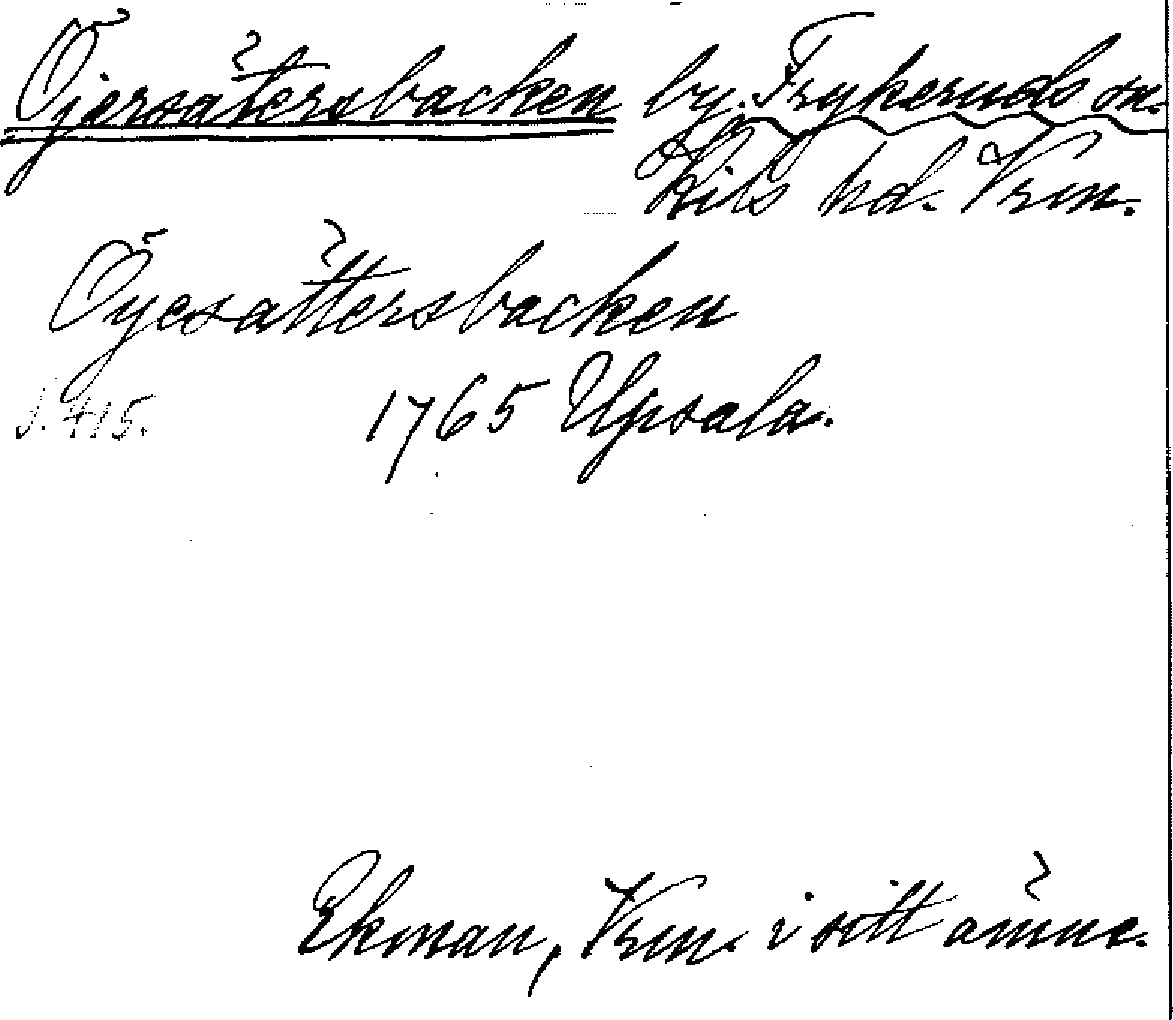 Öjersätersbacken by. Frykeruds sn.
Kils hd. Vrm.
Öyesättersbacken
s. 415.
1765 Upsala.
Ekman, Vrm. i sitt ämne.